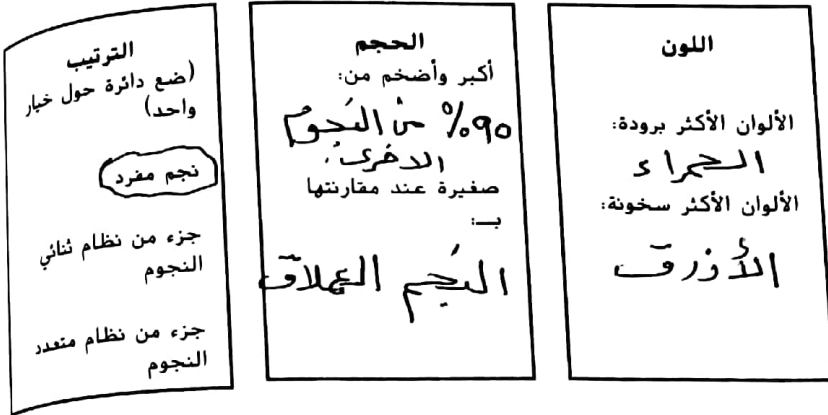 اللون
الألوان الأكثر برودة:
الحمراء
الألوان الأكثر سخونة:
الأزرق
الحجم
أكبر وأضخم من:
90% من النجوم
الاخرى.
صغيرة عند مقارنتها
بـ:
النجم العملاق
الترتيب
(ضع دائرة حول خيار
واحد)
نجم مفرد
جزء من نظام ثنائي
النجوم
جزء من نظام متعدد
النجوم